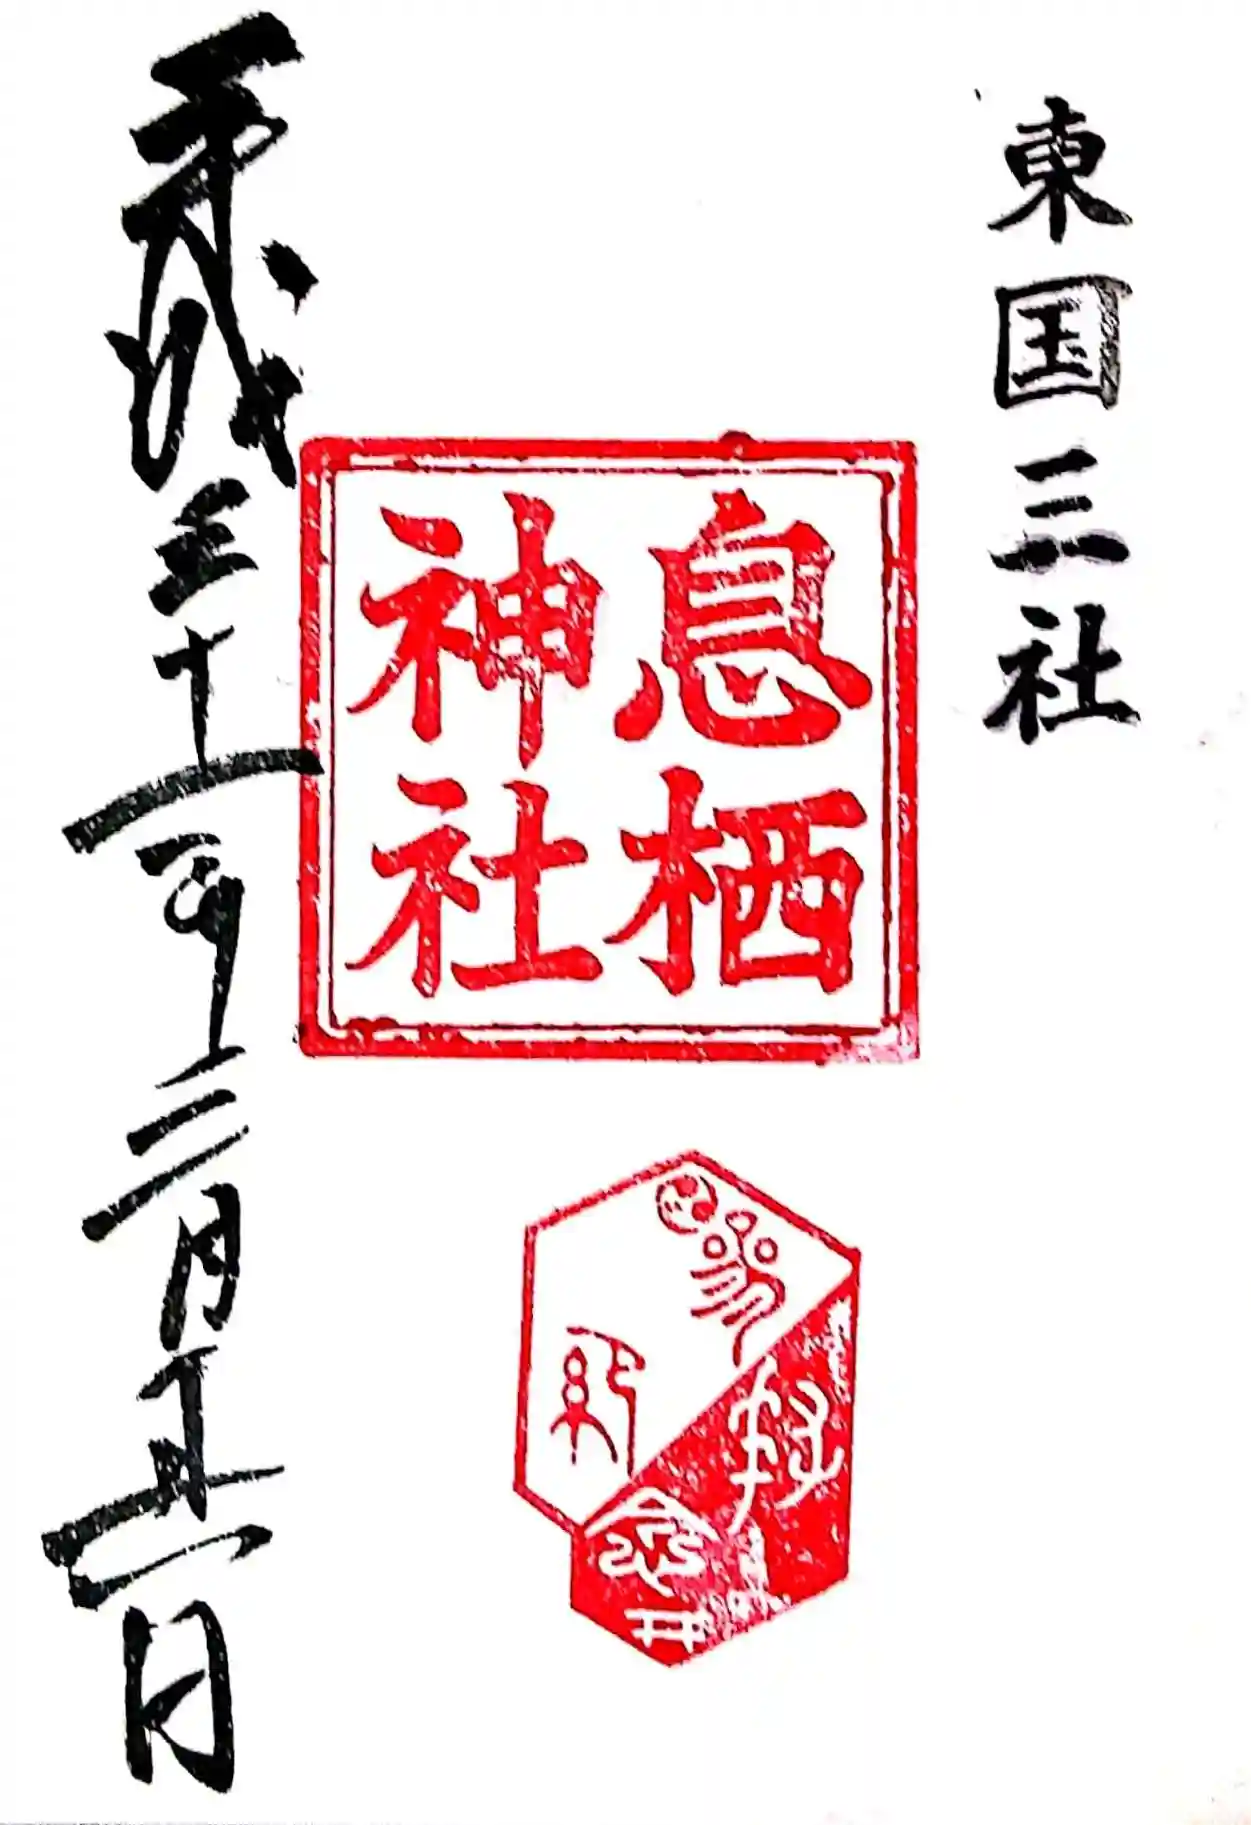 東国三社
息栖
神社
平成三十一年二月
日